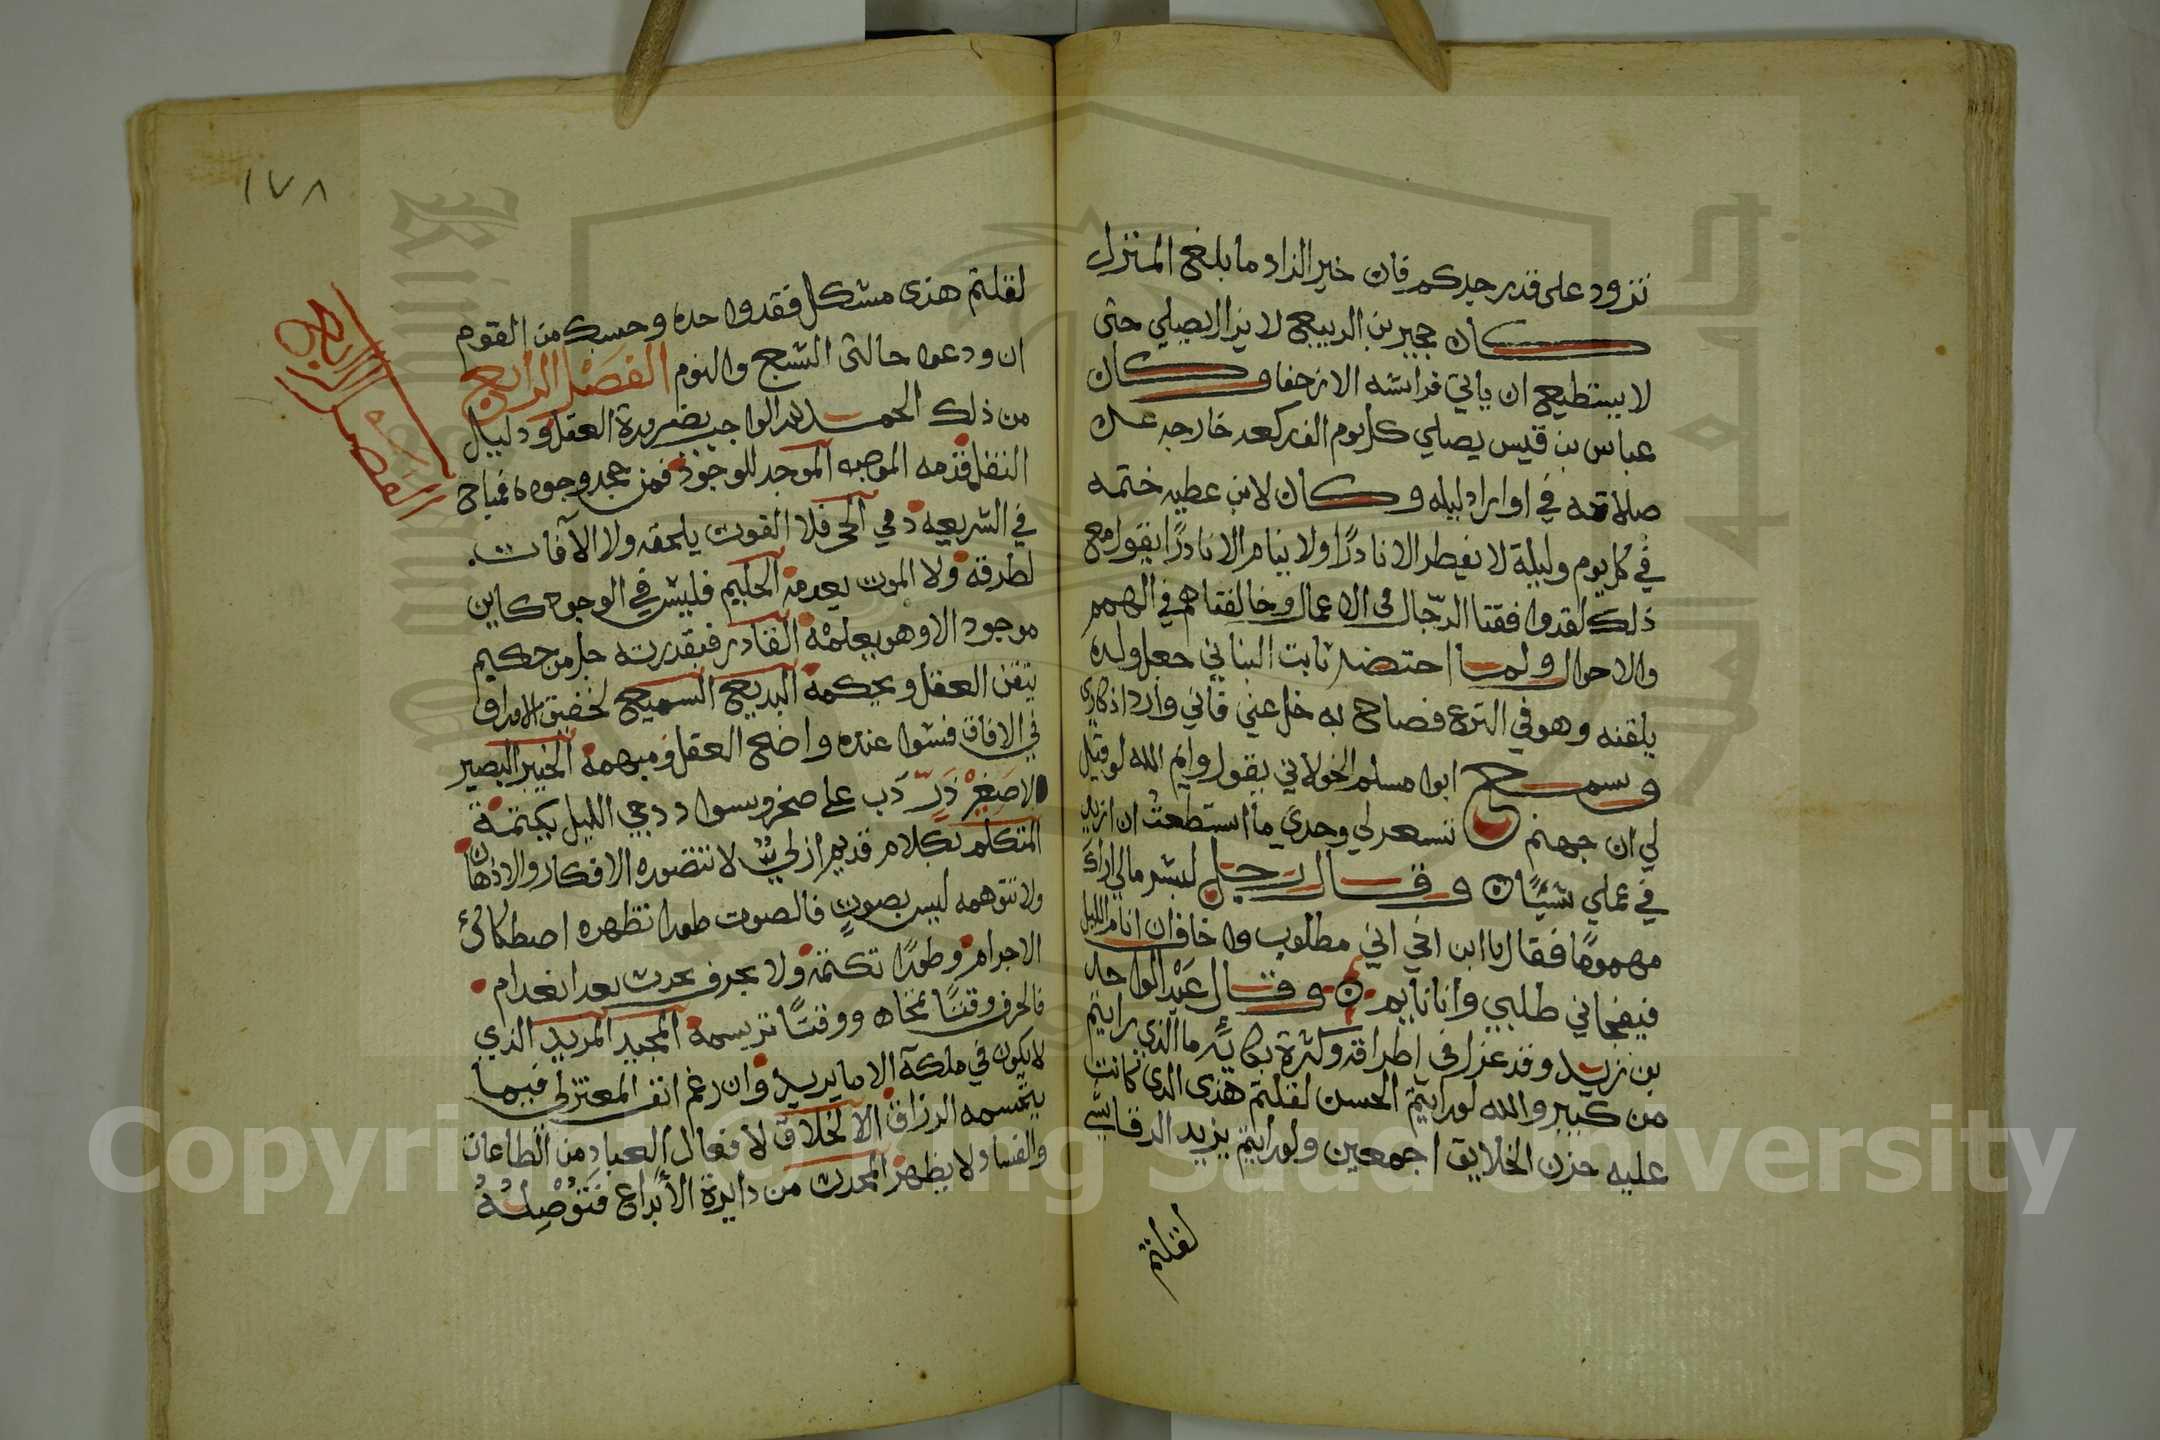 تزود على قدر جدكم فان خير الزاد ما بلغ المنزل
كان جبير بن الربيع لا يزال يصلي حتى
لا يستطيع ان ياتي فراشه الا زحفا وكان
عباس بن قيس يصلي كل يوم الف ركعه خارجه عن
صلاته في اوراد ليله وكان لابن عطيه ختمه
في كل يوم وليلة لا يفطر الا نادرًا ولا ينام الا نادرًا يقول مع
ذلك لقد وافقنا الرّجال في الاعمال وخالفناهم في الهمم
والاحوال ولما احتضر ثابت البناني جعل ولده
يلقنه وهو في النزع فصاح به خل عني فاني وارد اذكاري
وسمع ابوا مسلم الخولاني يقول وايم الله لو قيل
لي ان جهنم تسعر لي وحدي ما استطعت ان ازيد
في عملي شيئًا ن وقال رجل لبشر مالي اراك
مهمومًا فقال يا ابن اخي اني مطلوب واخاف ان انام الليل
فيفجاني طلبي وانا نايم ن وقال عبد الواحد
بن زيد وقد عزل في اطراقه وكثرة بكايه ما الذي رايتم
من كبير والله لو رايتم الحسن لقلتم هذى الذي كانت
عليه حزن الخلايق اجمعين ولو رايتم يزيد الرقاشي
لقلتم
١٧٨
لقلتم هذى مشكل فقد واحده وحسبك من القوم
ان ودعوا حالتى الشبع والنوم الفصل الرابع
الفصل الرابع
من ذلك الحمد لله الواجب بضرورة العقل ودليل
النقل قدمه الموجه الموجد للوجود فمن جحد وجوده فمباح
في الشريعه دمي الحي فلا الفوت يلحقه ولا الآفات
تطرقه ولا الموت يعدمه الحليم فليس في الوجود كاين
موجود الا وهو يعلمه القادر فبقدرته جل من حكيم
يتقن العقل ويحكمه البديع السميع لخفيق الاوراق
في الافاق فسوا عنده واضح العقل ومبهمه الخبير البصير
لاصغر ذرّ دَب على صخر وسواد دجي الليل يكتمه
المتكلم بكلام قديم ازلي لا تتصوره الافكار والاذهان
ولا تتوهمه ليس بصوتٍ فالصوت طورا تظهره اصطكاك
الاجرام وطورًا تكتمه ولا بحرف يحدث بعد انعدام
فالحرف وقتًا تمحاه ووقتًا ترسمه المجيد المريد الذي
لا يكون في ملكه الا ما يريد وان رغم انف المعتزلي فيما
يتجسمه الرزاق الا الخلاق لافعال العباد من الطاعات
والفساد لا يظهر المحدث من دايرة الأبداع فتوصله